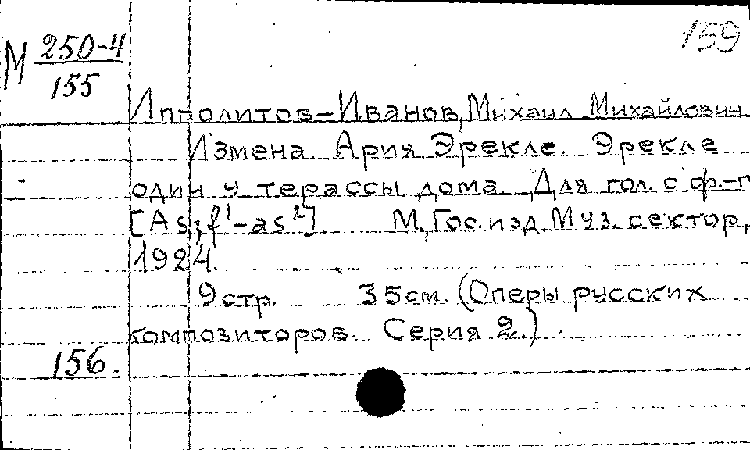 159
М 250-4
155
Ипполитов-Иванов, Михаил Михайлович
Измена. Ария Эрекле. Эрекле
один у терассы дома. Для гол. с ф-п
[As; f¹-as²] М., Гос. изд. Муз. сектор,
1924
9 стр. 35 см. (Оперы русских
композиторов. Серия 2.)
156.